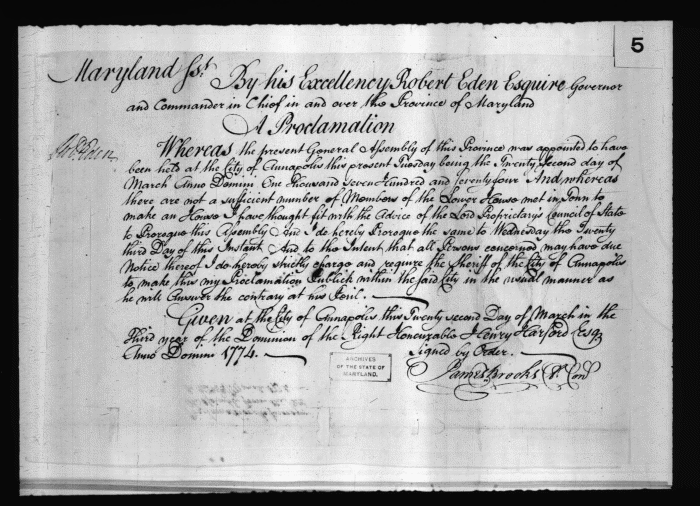 5
Maryland Ss.t By his Excellency Robert Eden Esquire Governor
and Commander in Chief in and over the Province of Maryland
A Proclamation
Rob.t Eden
Whereas the present General Assembly of this Province was appointed to have
been held at the City of Annapolis this present Tuesday being the Twenty Second day of
March Anno Domini One Thousand Seven Hundred and Seventy four And, whereas
there are not a sufficient number of Members of the Lower House met in Town to
make an House I have thought fit with the Advice of the Lord Proprietary's Council of State
to Prorogue this Assembly And I do hereby Prorogue the same to Wednesday the Twenty
third Day of this Instant And to the Intent that all Persons concerned may have due
Notice thereof I do hereby strictly charge and require the Sheriff of the City of Annapolis
to make this my Proclamation Publick within the said City in the usual manner as
he will Answer the contrary at his Peril.
Given at the City of Annapolis this Twenty Second Day of March in the
Third year of the Dominion of the Right Honourable Henry Harford Esq
Anno Domini 1774. Signed by Order.
ARCHIVES
OF THE STATE OF
MARYLAND.
James Brooks Cl Con